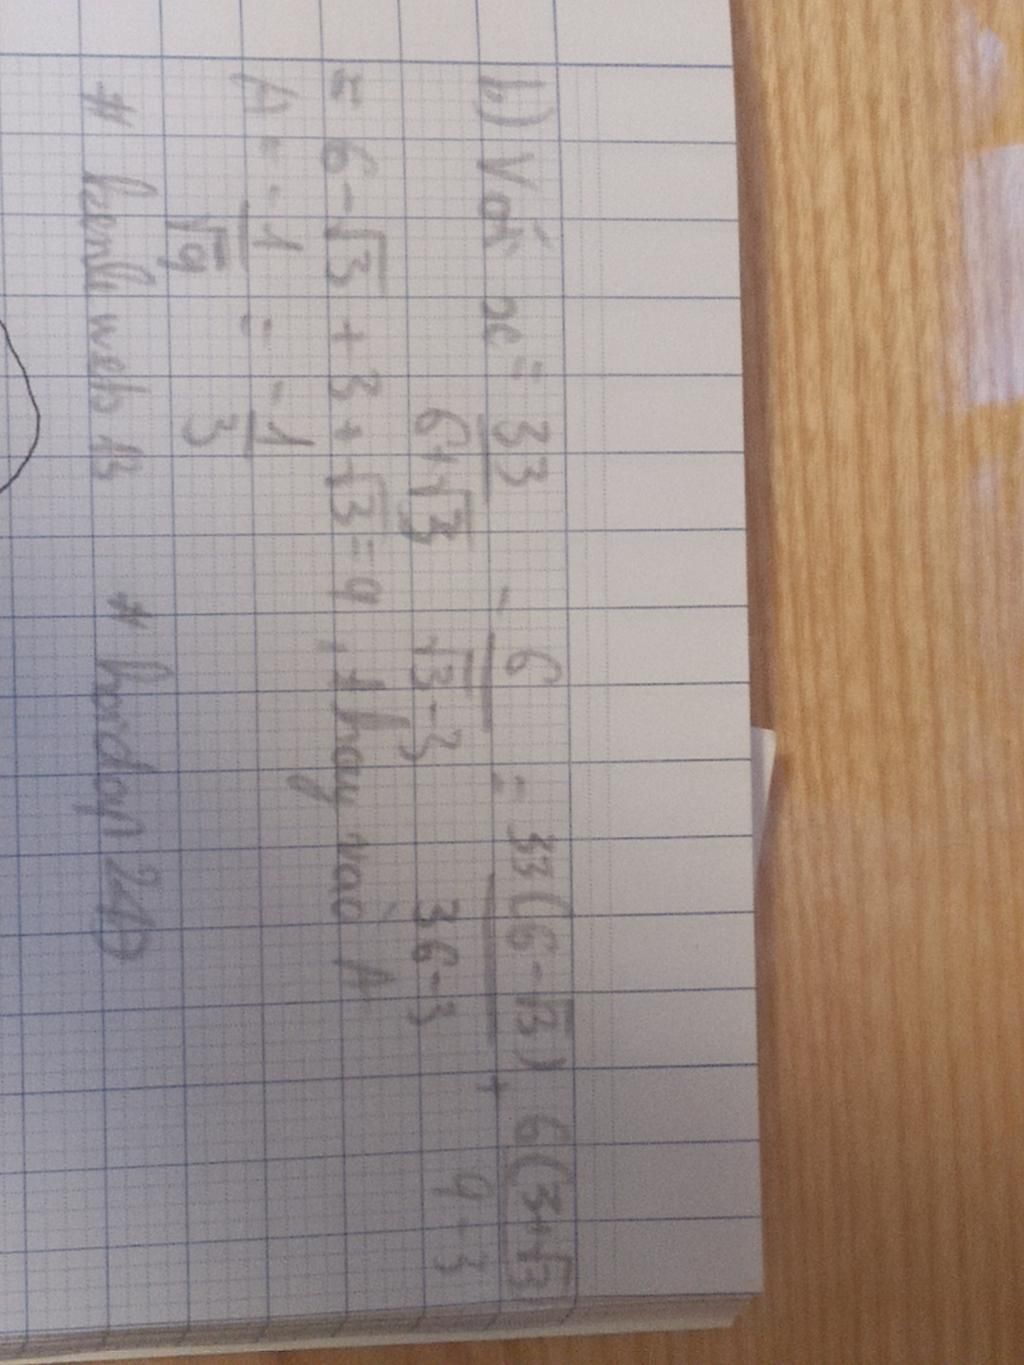 b) Với x = 33/(6+√3) - 6/(√3-3) = 33(6-√3)/(36-3) + 6(3+√3)/(9-3)
= 6-√3 + 3+√3 = 9, thay vào A
A = -1/√9 = -1/3
# hoidap247